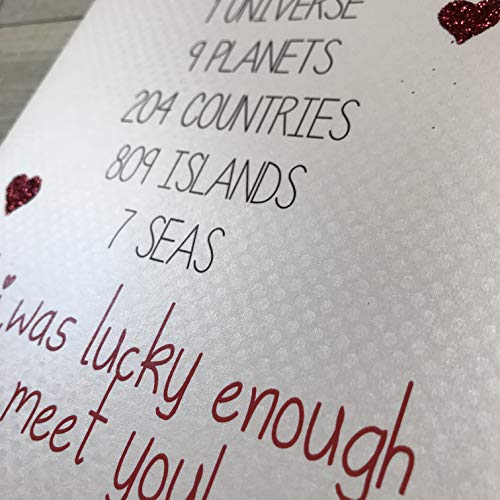 1 UNIVERSE
9 PLANETS
204 COUNTRIES
809 ISLANDS
7 SEAS
i was lucky enough
meet you!